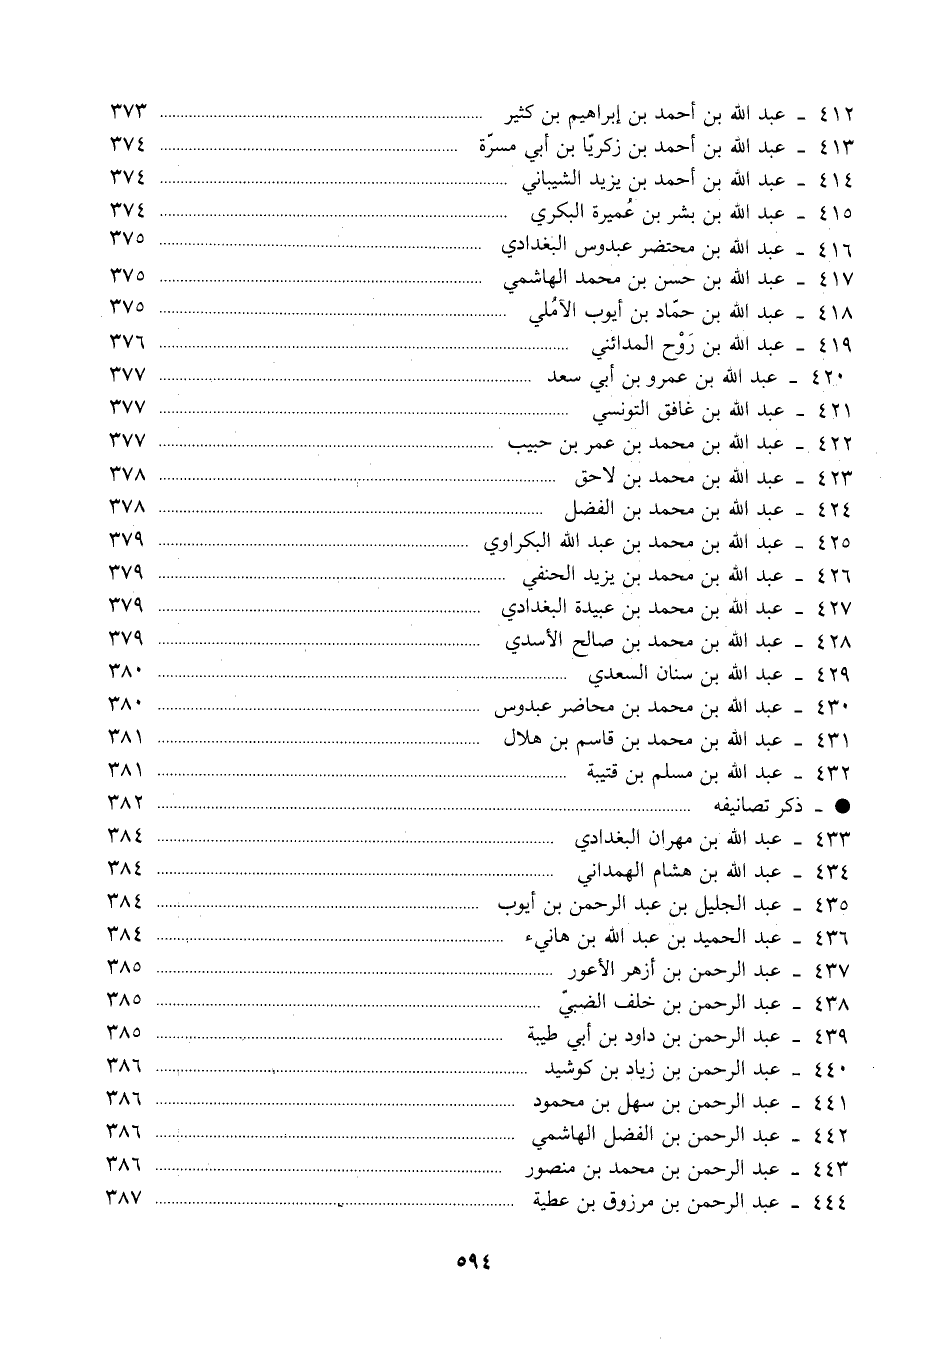 ٤١٢ - عبد الله بن أحمد بن إبراهيم بن كثير ........ ٣٧٣
٤١٣ - عبد الله بن أحمد بن زكريّا بن أبي مسرّة ........ ٣٧٤
٤١٤ - عبد الله بن أحمد بن يزيد الشيباني ........ ٣٧٤
٤١٥ - عبد الله بن بشر بن عُميرة البكري ........ ٣٧٤
٤١٦ - عبد الله بن محتضر عبدوس البغدادي ........ ٣٧٥
٤١٧ - عبد الله بن حسن بن محمد الهاشمي ........ ٣٧٥
٤١٨ - عبد الله بن حمّاد بن أيوب الآمُلي ........ ٣٧٥
٤١٩ - عبد الله بن رَوْح المدائني ........ ٣٧٦
٤٢٠ - عبد الله بن عمرو بن أبي سعد ........ ٣٧٧
٤٢١ - عبد الله بن غافق التونسي ........ ٣٧٧
٤٢٢ - عبد الله بن محمد بن عمر بن حبيب ........ ٣٧٧
٤٢٣ - عبد الله بن محمد بن لاحق ........ ٣٧٨
٤٢٤ - عبد الله بن محمد بن الفضل ........ ٣٧٨
٤٢٥ - عبد الله بن محمد بن عبد الله البكراوي ........ ٣٧٩
٤٢٦ - عبد الله بن محمد بن يزيد الحنفي ........ ٣٧٩
٤٢٧ - عبد الله بن محمد بن عبيدة البغدادي ........ ٣٧٩
٤٢٨ - عبد الله بن محمد بن صالح الأسدي ........ ٣٧٩
٤٢٩ - عبد الله بن سنان السعدي ........ ٣٨٠
٤٣٠ - عبد الله بن محمد بن محاضر عبدوس ........ ٣٨٠
٤٣١ - عبد الله بن محمد بن قاسم بن هلال ........ ٣٨١
٤٣٢ - عبد الله بن مسلم بن قتيبة ........ ٣٨١
● - ذكر تصانيفه ........ ٣٨٢
٤٣٣ - عبد الله بن مهران البغدادي ........ ٣٨٤
٤٣٤ - عبد الله بن هشام الهمداني ........ ٣٨٤
٤٣٥ - عبد الجليل بن عبد الرحمن بن أيوب ........ ٣٨٤
٤٣٦ - عبد الحميد بن عبد الله بن هانيء ........ ٣٨٤
٤٣٧ - عبد الرحمن بن أزهر الأعور ........ ٣٨٥
٤٣٨ - عبد الرحمن بن خلف الضبيّ ........ ٣٨٥
٤٣٩ - عبد الرحمن بن داود بن أبي طيبة ........ ٣٨٥
٤٤٠ - عبد الرحمن بن زياد بن كوشيد ........ ٣٨٦
٤٤١ - عبد الرحمن بن سهل بن محمود ........ ٣٨٦
٤٤٢ - عبد الرحمن بن الفضل الهاشمي ........ ٣٨٦
٤٤٣ - عبد الرحمن بن محمد بن منصور ........ ٣٨٦
٤٤٤ - عبد الرحمن بن مرزوق بن عطية ........ ٣٨٧
٥٩٤